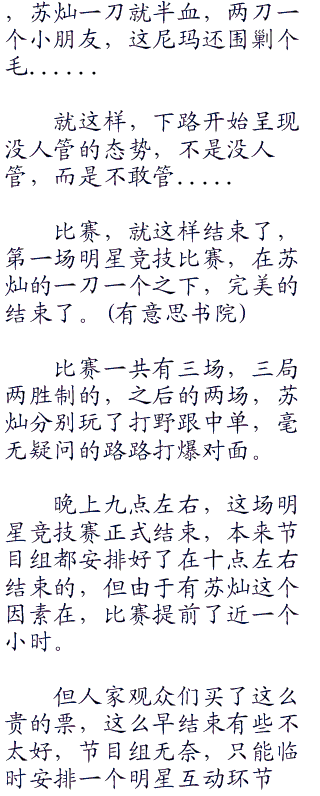 ，苏灿一刀就半血，两刀一
个小朋友，这尼玛还围剿个
毛......
就这样，下路开始呈现
没人管的态势，不是没人
管，而是不敢管.....
比赛，就这样结束了，
第一场明星竞技比赛，在苏
灿的一刀一个之下，完美的
结束了。(有意思书院)
比赛一共有三场，三局
两胜制的，之后的两场，苏
灿分别玩了打野跟中单，毫
无疑问的路路打爆对面。
晚上九点左右，这场明
星竞技赛正式结束，本来节
目组都安排好了在十点左右
结束的，但由于有苏灿这个
因素在，比赛提前了近一个
小时。
但人家观众们买了这么
贵的票，这么早结束有些不
太好，节目组无奈，只能临
时安排一个明星互动环节